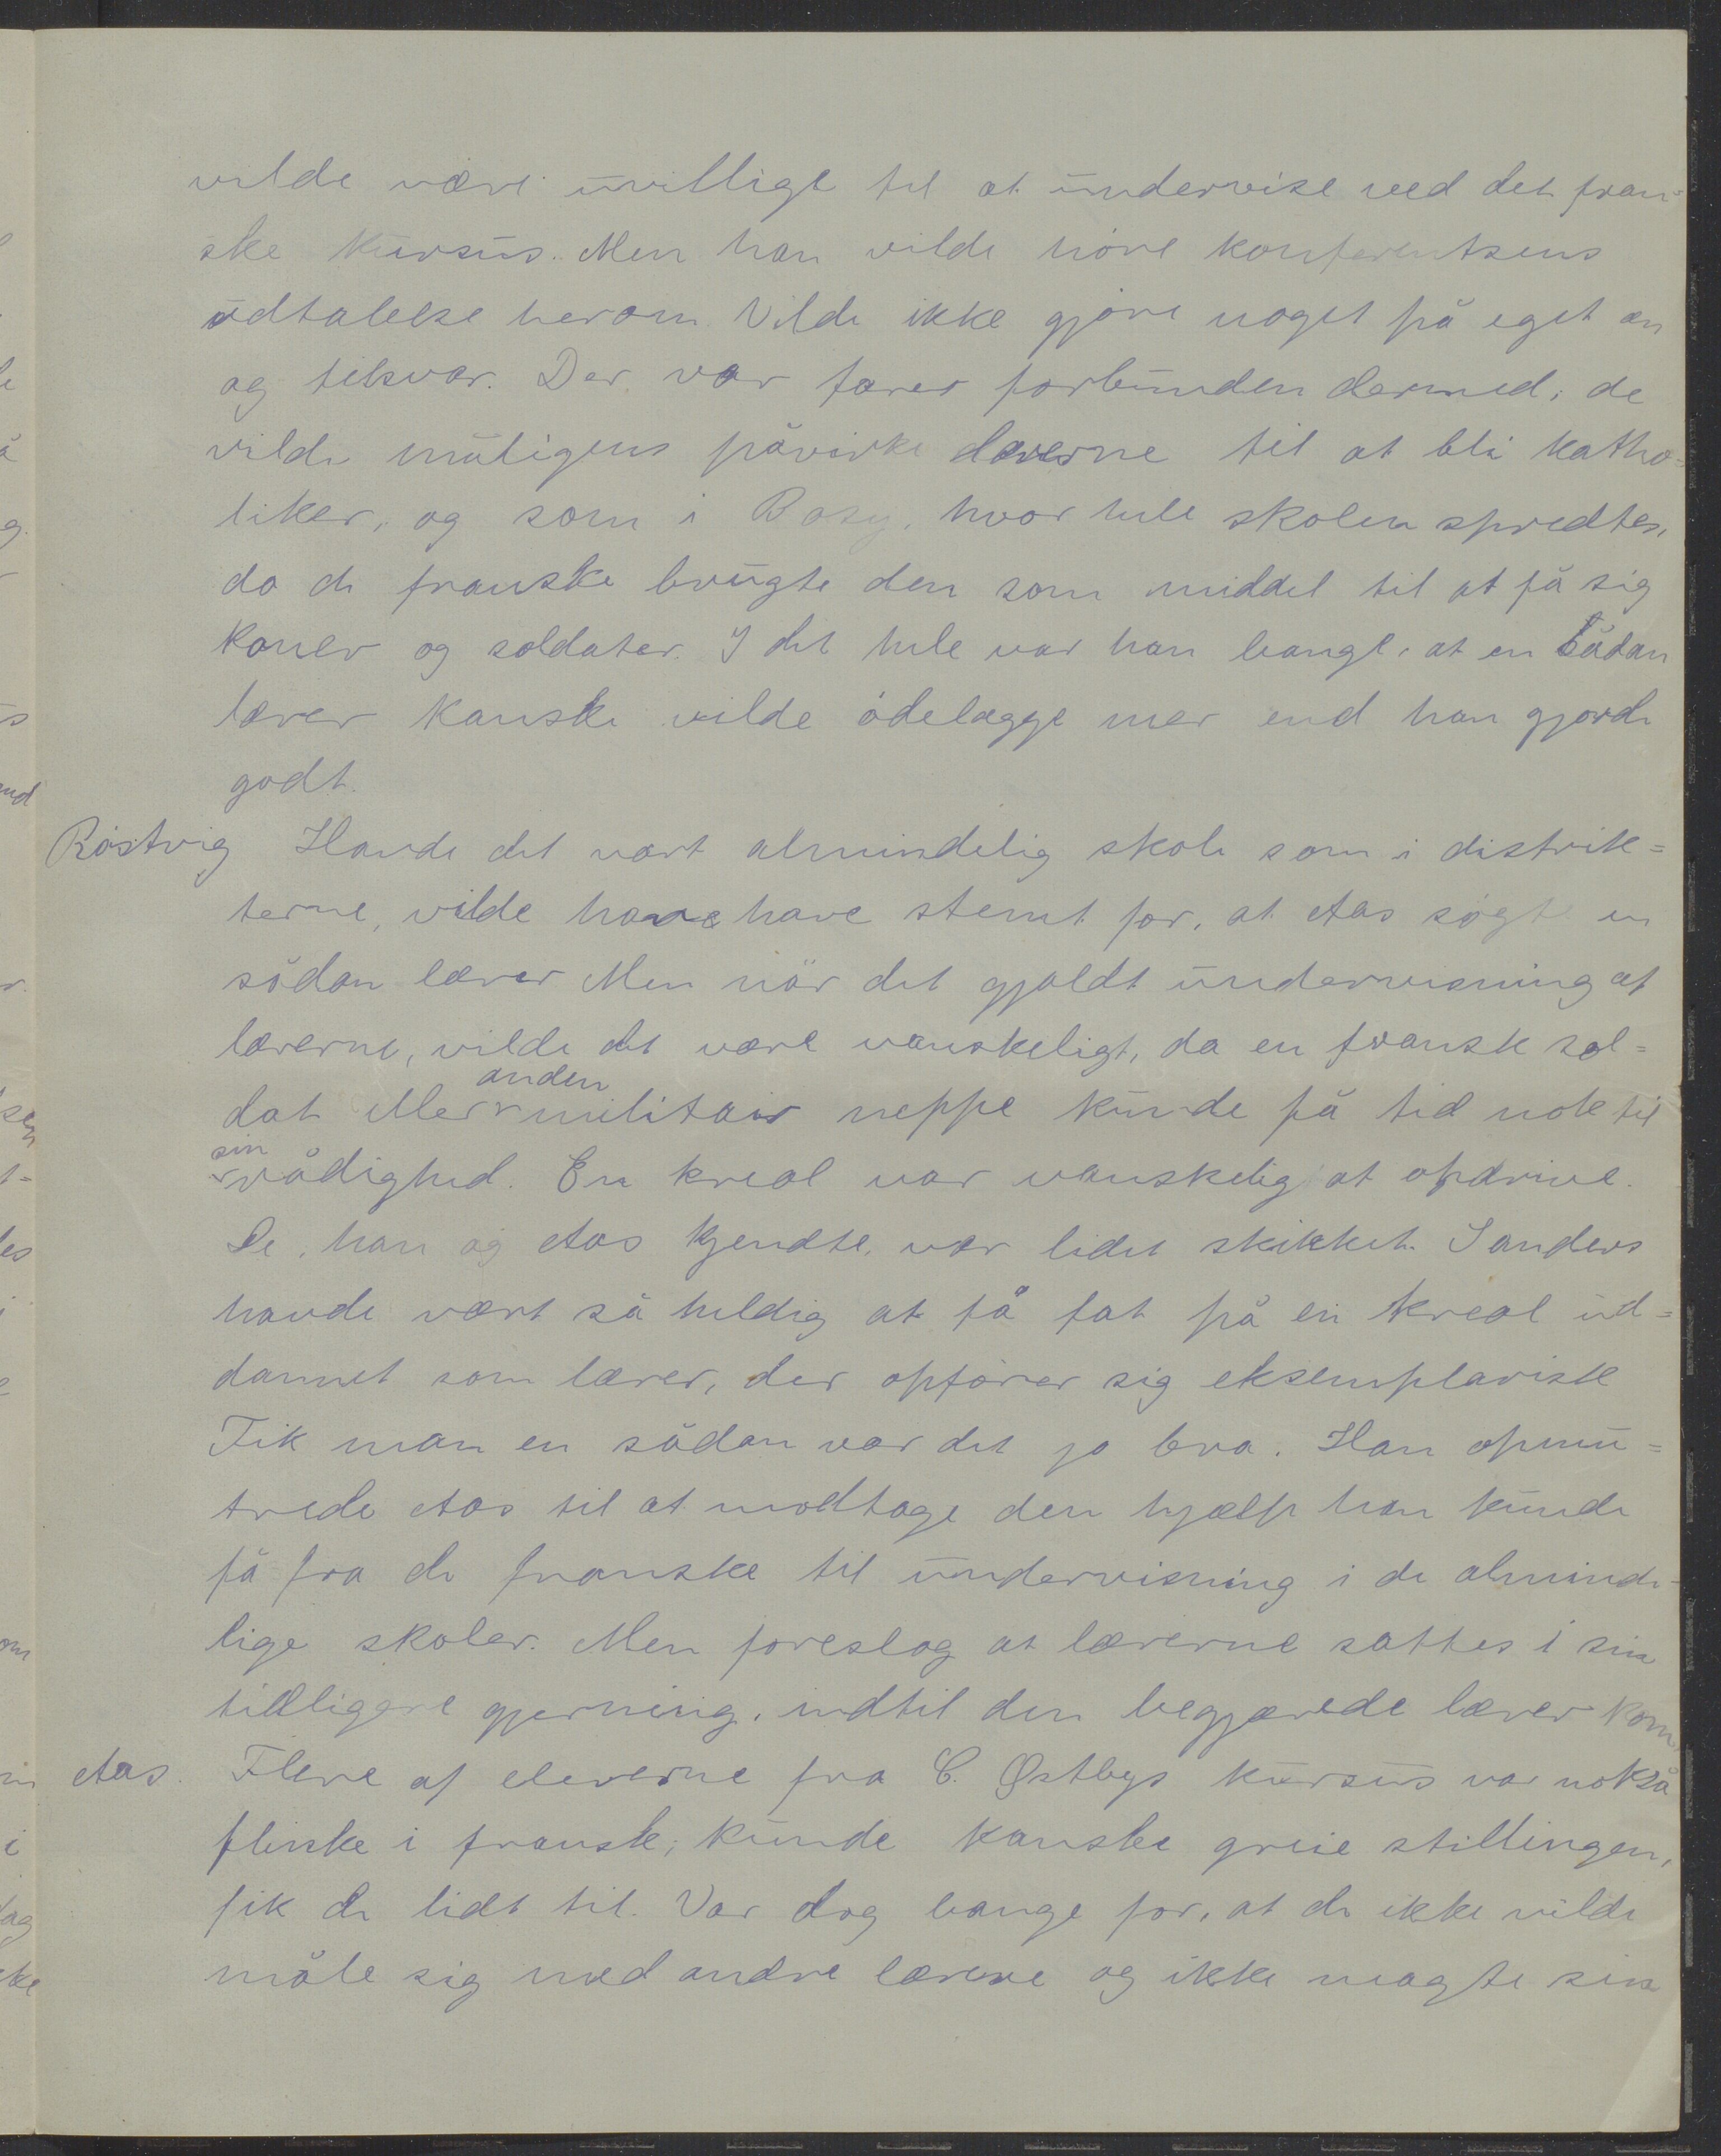 vilde være uvillige til at undervise ved det fran=
ske kursus. Men han vilde høre konferentsens
udtalelse herom. Vilde ikke gjøre noget på eget an
og tilsvar. Der var farer forbunden dermed; de
vilde muligens påvirke lærerne til at bli katho=
liker, og som i Rosy, hvor hele skolen spredtes,
da de franske brugte den som middel til at få sig
koner og soldater. I det hele var han bange, at en sådan
lærer kanske vilde ødelægge mer end han gjorde
godt.
Röstvig Havde det vært almindelig skole som i distrik=
terne, vilde han have stemt for, at Aas søgte en
sådan lærer. Men når det gjaldt undervisning af
lærerne, vilde det være vanskeligt, da en fransk sol=
dat eller anden militair neppe kunde få tid nok til
sin rådighed. En kreol var vanskelig at opdrive.
De, han og Aas kjendte, var lidet skikket. Sanders
havde vært så heldig at få fat på en kreol ud=
dannet som lærer, der opfører sig eksemplarisk
Fik man en sådan var det jo bra. Han opmun=
trede Aas til at modtage den hjælp han kunde
få fra de franske til undervisning i de alminde=
lige skoler. Men foreslog at lærerne sattes i sin
tidligere gjerning, indtil den begjærede lærer kom.
Aas. Flere af eleverne fra C. Østbys kursus var nokså
flinke i fransk; kunde kanske greie stillingen,
fik de lidt til. Var dog bange for, at de ikke vilde
måle sig med andre lærere og ikke magte sin